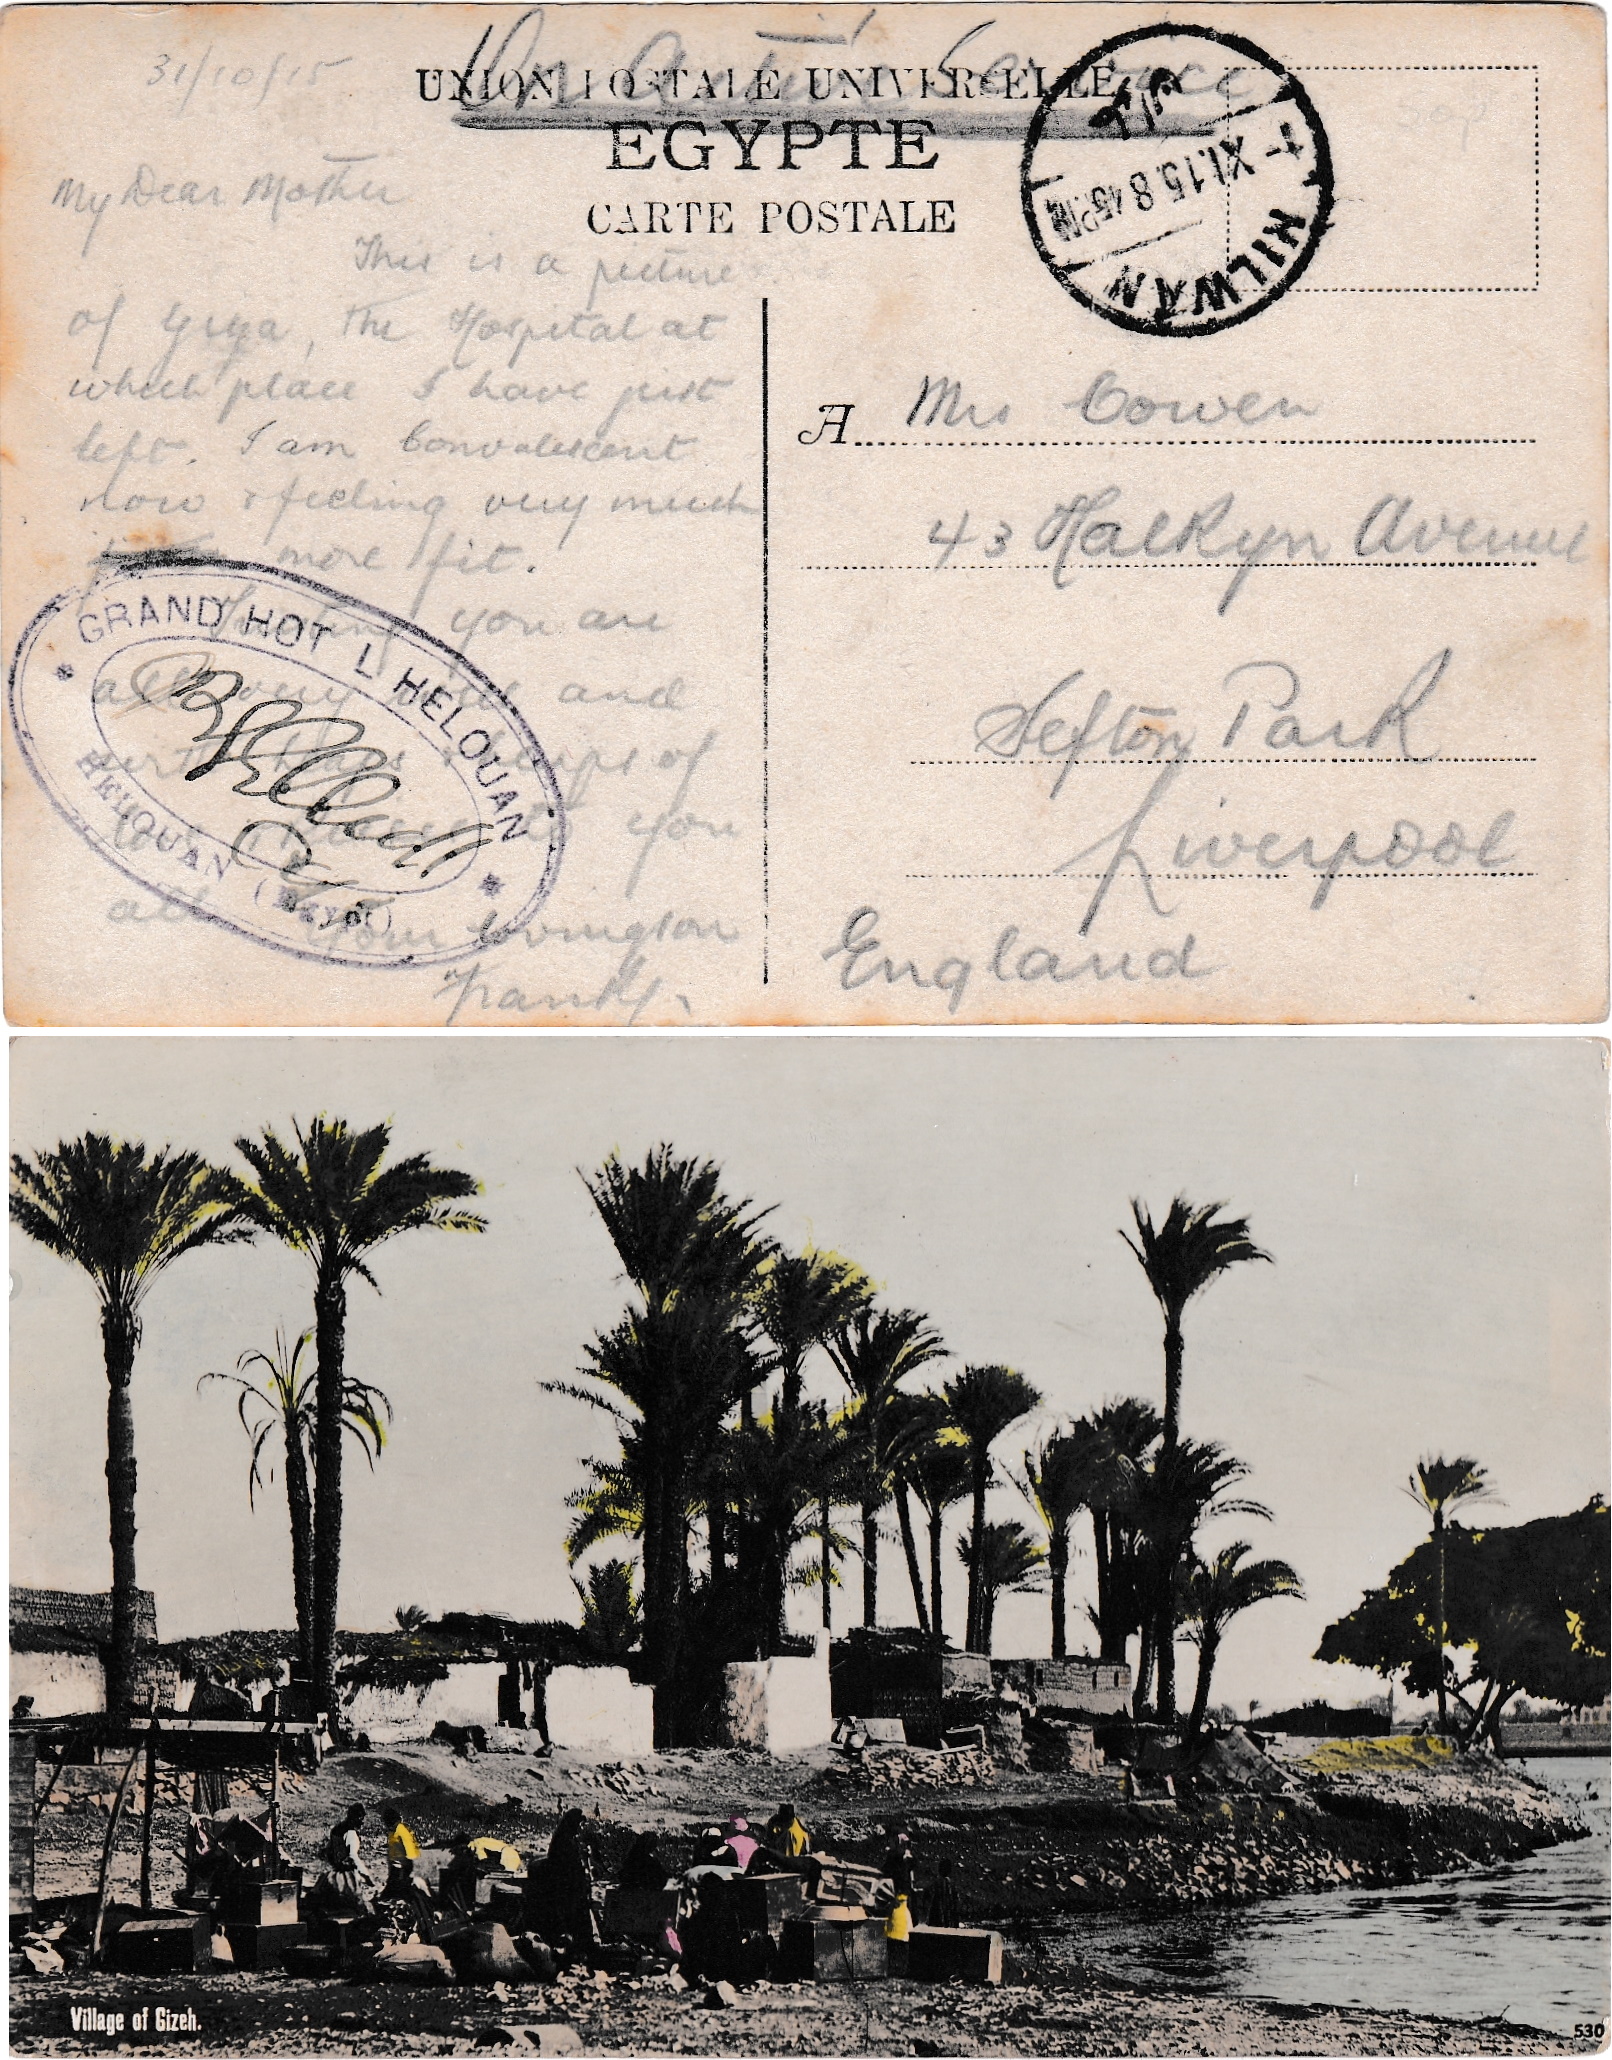 31/10/15
On Active Service
UNION POSTALE UNIVERSELLE
EGYPTE
CARTE POSTALE
HILWAN
1-XI.15.8 45PM
My Dear Mother
This is a picture
of Giza, the Hospital at
which place I have just
left. I am Convalescent
now & feeling very much
more fit.
Trusting you are
all very well and
with heaps of
love you
all
Your loving son
Frank.
GRAND HOT L HELOUAN
HELOUAN (Egypt)
A Mrs Cowen
43 Halkyn Avenue
Sefton Park
Liverpool
England
Village of Gizeh.
530